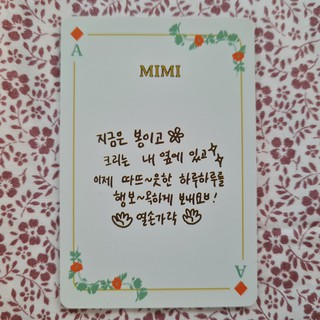 A
MIMI
지금은 봄이고
크리는 내 옆에 있고
이제 따뜨~읏한 하루하루를
행보~옥하게 보내요!
열손가락
A